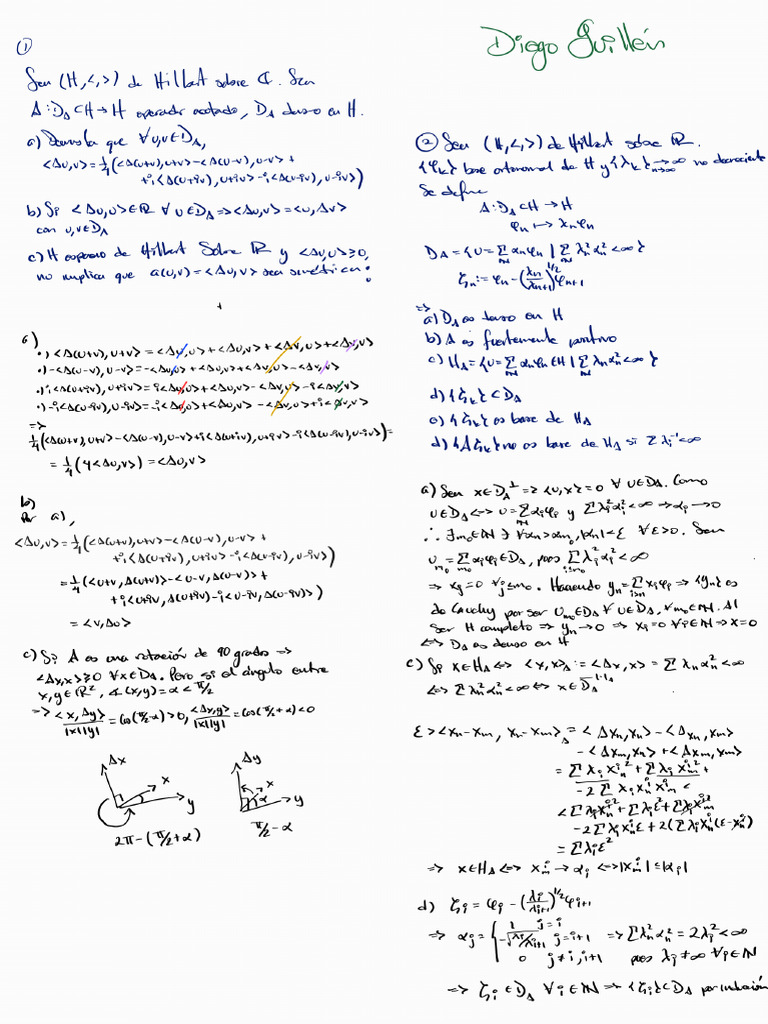 Diego Guillén
①
Sea (H,<,>) de Hilbert sobre ℂ. Sea
A: D_A ⊂ H → H operador acotado, D_A denso en H.
a) Demuestra que ∀ u,v ∈ D_A,
<Au,v> = 1/4(<A(u+v),u+v> - <A(u-v),u-v> +
+i<A(u+iv),u+iv> - i<A(u-iv),u-iv>)
b) Si <Au,u> ∈ ℝ ∀ u ∈ D_A => <Au,v> = <u,Av>
con u,v ∈ D_A
c) H espacio de Hilbert Sobre ℝ y <Au,u> ≥ 0,
no implica que a(u,v) = <Au,v> sea simétrica:
a)
•) <A(u+v),u+v> = <Au,u> + <Au,v> + <Av,u> + <Av,v>
•) -<A(u-v),u-v> = -<Au,u> + <Au,v> + <Av,u> - <Av,v>
•) i<A(u+iv),u+iv> = i<Au,u> + <Au,v> - <Av,u> - i<Av,v>
•) -i<A(u-iv),u-iv> = -i<Au,u> + <Au,v> - <Av,u> + i<Av,v>
=>
1/4(<A(u+v),u+v> - <A(u-v),u-v> + i<A(u+iv),u+iv> - i<A(u-iv),u-iv>) =
= 1/4(4<Au,v>) = <Au,v>
b)
Por a),
<Au,v> = 1/4(<A(u+v),u+v> - <A(u-v),u-v> +
+i<A(u+iv),u+iv> - i<A(u-iv),u-iv>)
= 1/4(<u+v,A(u+v)> - <u-v,A(u-v)> +
+i<u+iv,A(u+iv)> - i<u-iv,A(u-iv)>)
= <v,Au>
c) Si A es una rotación de 90 grados =>
<Ax,x> ≥ 0 ∀x ∈ D_A. Pero si el ángulo entre
x,y ∈ ℝ², ∢(x,y) = α < π/2
=> <x,Ay>/|x||y| = cos(π/2-α) > 0, <Ax,y>/|x||y| = cos(π/2+α) < 0
Ax x y
2π-(π/2+α)
Ay x α y
π/2-α
② Sea (H,<,>) de Hilbert sobre ℝ.
{φ_k} base ortonormal de H y {λ_k} →∞ n→∞ no decreciente
Se define
A: D_A ⊂ H → H
φ_n ↦ λ_nφ_n
D_A = {u = Σ α_nφ_n | Σ λ_n²α_n² < ∞}
ζ_n := φ_n - (λ_n/λ_{n+1})^{1/2} φ_{n+1}
=>
a) D_A es denso en H
b) A es fuertemente positivo
c) H_A = {u = Σ α_nφ_n ∈ H | Σ λ_nα_n² < ∞}
d) {ζ_k} ⊂ D_A
e) {ζ_k} es base de H_A
d) {Aζ_k} no es base de H_A si Σ λ_i⁻¹ < ∞
a) Sea x ∈ D_A^⊥ => <u,x> = 0 ∀ u ∈ D_A. Como
u ∈ D_A <=> u = Σ α_iφ_i y Σ λ_i²α_i² < ∞ => α_i → 0
∴ ∃ m_0 ∈ ℕ ∃ ∀ α_n > α_{m_0}, |α_n| < ε ∀ ε > 0. Sean
u_{m_0} = Σ α_iφ_i ∈ D_A, pues Σ_{i≤m_0} λ_i²α_i² < ∞
=> x_j = 0 ∀ j ≤ m_0. Haciendo y_n = Σ_{i>n} x_iφ_i => {y_n} es
de Cauchy por ser u_{m_0} ∈ D_A ∀ u ∈ D_A, ∀ m_0 ∈ ℕ. Al
ser H completo => y_n → 0 => x_i = 0 ∀ i ∈ ℕ => x = 0
<=> D_A es denso en H
c) Si x ∈ H_A <=> <x,x>_A := <Ax,x> = Σ λ_nα_n² < ∞
<=> Σ λ_n²α_n² < ∞ <=> x ∈ D_A
ε > <x_n - x_m, x_n - x_m>_A = <Ax_n,x_n> - <Ax_n,x_m>
- <Ax_m,x_n> + <Ax_m,x_m>
= Σ λ_i x_n^{i2} + Σ λ_i x_m^{i2} +
-2 Σ λ_i x_n^i x_m^i <
= Σ λ_i ε²
=> x ∈ H_A <=> x_m^i → α_i <=> |x_m^i| ≤ |α_i|
d) ζ_i = φ_i - (λ_i/λ_{i+1})^{1/2} φ_{i+1}
=> α_j = { 1 j = i
-√(λ_i/λ_{i+1}) j = i+1 => Σ λ_n²α_n² = 2λ_i² < ∞
0 j ≠ i, i+1 pues λ_i ≠ ∞ ∀ i ∈ ℕ
=> ζ_i ∈ D_A ∀ i ∈ ℕ => {ζ_i} ⊂ D_A por inducción